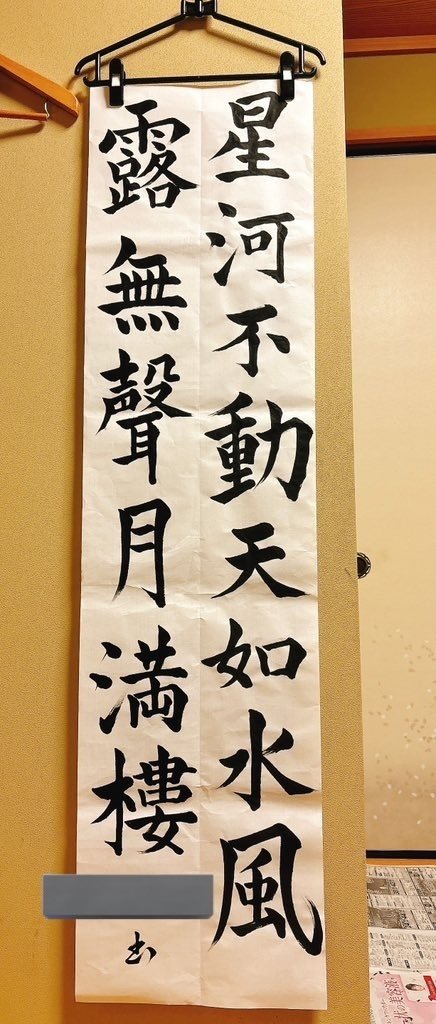 星河不動天如水風
露無聲月満樓